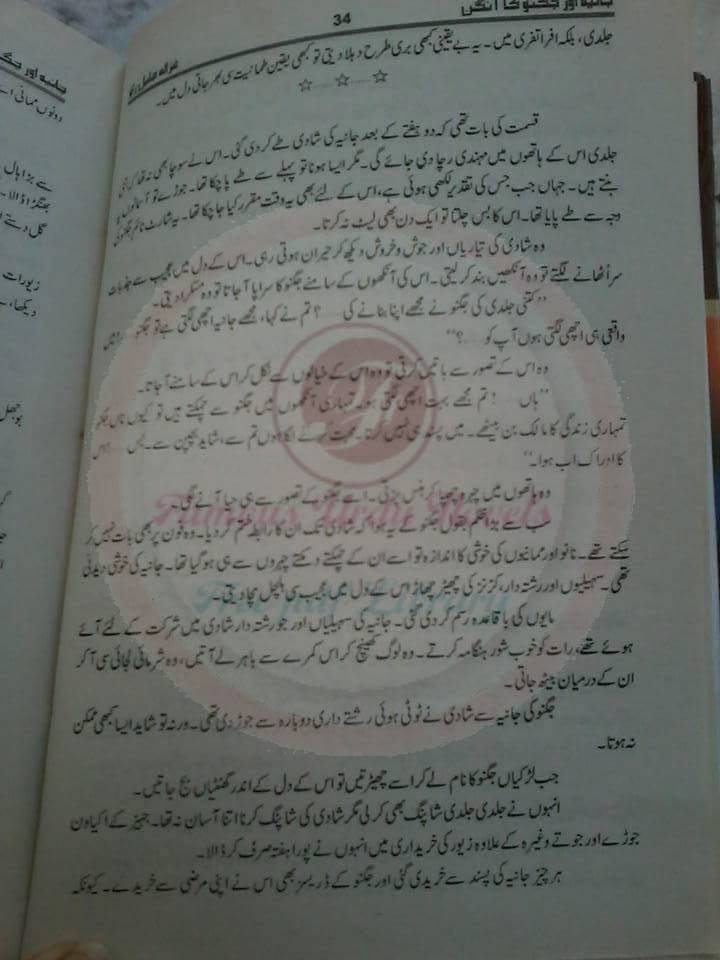 34
جانیہ اور جگنو کا آنگن
غزالہ جلیل راؤ
جلدی، بلکہ افراتفری میں۔ یہ بے یقینی کبھی بری طرح دہلا دیتی تو کبھی یقین طمانیت سی بھر جاتی دل میں۔
☆ ...... ☆ ...... ☆
قسمت کی بات تھی کہ دو ہفتے کے بعد جانیہ کی شادی طے کر دی گئی۔ اس نے سوچا بھی نہ تھا کہ اتنی
جلدی اس کے ہاتھوں میں مہندی رچا دی جائے گی۔ مگر ایسا ہونا تو پہلے سے طے پا چکا تھا۔ جوڑے تو آسمانوں پر
بنتے ہیں۔ جہاں جب جس کی تقدیر لکھی ہوئی ہے، اس کے لئے بھی یہ وقت مقرر کیا جا چکا تھا۔ یہ شارٹ ٹائم جگنو کی
وجہ سے طے پایا تھا۔ اس کا بس چلتا تو ایک دن بھی لیٹ نہ کرتا۔
وہ شادی کی تیاریاں اور جوش و خروش دیکھ کر حیران ہوتی رہی۔ اس کے دل میں عجیب سے جذبات
سر اُٹھانے لگتے تو وہ آنکھیں بند کر لیتی۔ اس کی آنکھوں کے سامنے جگنو کا سراپا آ جاتا تو وہ مسکرا دیتی۔
’’کتنی جلدی کی جگنو نے مجھے اپنا بنانے کی ......؟ تم نے کہا، مجھے جانیہ اچھی لگتی ہے تو جگنو ......! میں
واقعی ہی اچھی لگتی ہوں آپ کو ......؟‘‘
وہ اس کے تصور سے باتیں کرتی تو وہ اس کے خیالوں سے نکل کر اس کے سامنے آ جاتا۔
’’ہاں ......! تم مجھے بہت اچھی لگتی ہو۔ تمہاری آنکھوں میں جگنو سے چمکتے ہیں تو کیوں ناں جگنو
تمہاری زندگی کا مالک بن بیٹھے۔ میں پسند ہی نہیں کرتا۔ محبت کرنے لگا ہوں تم سے، شاید بچپن سے۔ بس ......! اس
کا ادراک اب ہوا۔‘‘
وہ ہاتھوں میں چہرہ چھپا کر ہنس پڑتی۔ اسے جگنو کے تصور سے ہی حیا آنے لگی۔
سب سے بڑا ظلم بقول جگنو کے یہ ہوا کہ شادی تک ان کا رابطہ ختم کر دیا۔ وہ فون پر بھی بات نہیں کر
سکتے تھے۔ نانو اور ممانیوں کی خوشی کا اندازہ تو اسے ان کے چمکتے دمکتے چہروں سے ہی ہو گیا تھا۔ جانیہ کی خوشی دیدنی
تھی۔ سہیلیوں اور رشتہ دار، کزنز کی چھیڑ چھاڑ اس کے دل میں عجیب سی ہلچل مچا دیتی۔
مایوں کی باقاعدہ رسم کر دی گئی۔ جانیہ کی سہیلیاں اور جو رشتہ دار شادی میں شرکت کے لئے آئے
ہوئے تھے، رات کو خوب شور ہنگامہ کرتے۔ وہ لوگ کھینچ کر اس کمرے سے باہر لے آتیں، وہ شرمائی لجائی سی آ کر
ان کے درمیان بیٹھ جاتی۔
جگنو کی جانیہ سے شادی نے ٹوٹی ہوئی رشتے داری دوبارہ سے جوڑ دی تھی۔ ورنہ تو شاید ایسا کبھی ممکن
نہ ہوتا۔
جب لڑکیاں جگنو کا نام لے کر اسے چھیڑتیں تو اس کے دل کے اندر گھنٹیاں بج جاتیں۔
انہوں نے جلدی جلدی شاپنگ بھی کر لی مگر شادی کی شاپنگ کرنا اتنا آسان نہ تھا۔ جہیز کے اکیاون
جوڑے اور جوتے وغیرہ کے علاوہ زیور کی خریداری میں انہوں نے پورا ہفتہ صرف کر ڈالا۔
ہر چیز جانیہ کی پسند سے خریدی گئی اور جگنو کے ڈریسز بھی اس نے اپنی مرضی سے خریدے۔ کیونکہ
Famous Urdu Novels
دونوں ممانی
سے بڑا ہال
بھنگڑا ڈالا۔
گل دستے
زیورات
دیکھا،
بوجھل